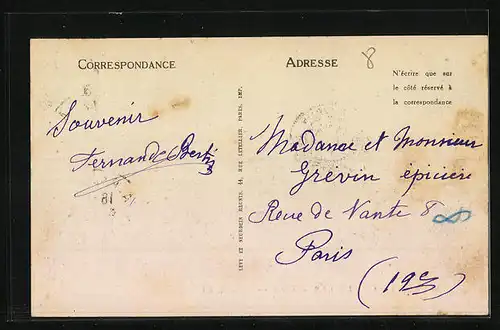 CORRESPONDANCE
ADRESSE
8
N'écrire que sur
le côté réservé à
la correspondance
Souvenir
Fernande
LEVY ET NEURDEIN RÉUNIS, 44, RUE LETELLIER, PARIS, IMP.
Madame et Monsieur
Grévin épicière
Rue de Nante 8
8
Paris
(19e)